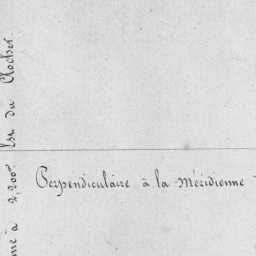 Perpendiculaire à la Méridienne
à 2,200m Est du Clocher